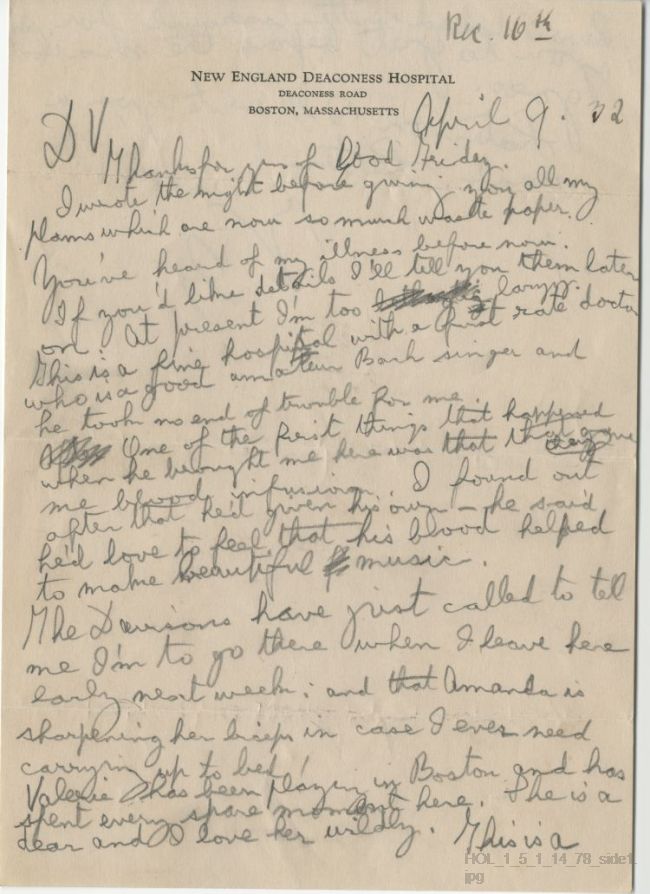 Rec. 16th
NEW ENGLAND DEACONESS HOSPITAL
DEACONESS ROAD
BOSTON, MASSACHUSETTS
April 9. 32
D V
Thanks for yrs of Good Friday.
I wrote the night before giving you all my
plans which are now so much waste paper.
You've heard of my illness before now.
If you'd like details I'll tell you them later
on. At present I'm too lazy.
This is a fine hospital with a first rate doctor
who is a good amateur Bach singer and
he took no end of trouble for me.
One of the first things that happened
when he brought me here was that they gave
me blood infusion. I found out
after that he'd given his own – he said
he'd love to feel that his blood helped
to make beautiful music.
The Davisons have just called to tell
me I'm to go there when I leave here
early next week; and that Amanda is
sharpening her biceps in case I ever need
carrying up to bed!
Valerie has been playing in Boston and has
spent every spare moment here. She is a
dear and I love her wildly. This is a
HOL_1_5_1_14_78_side1.
jpg